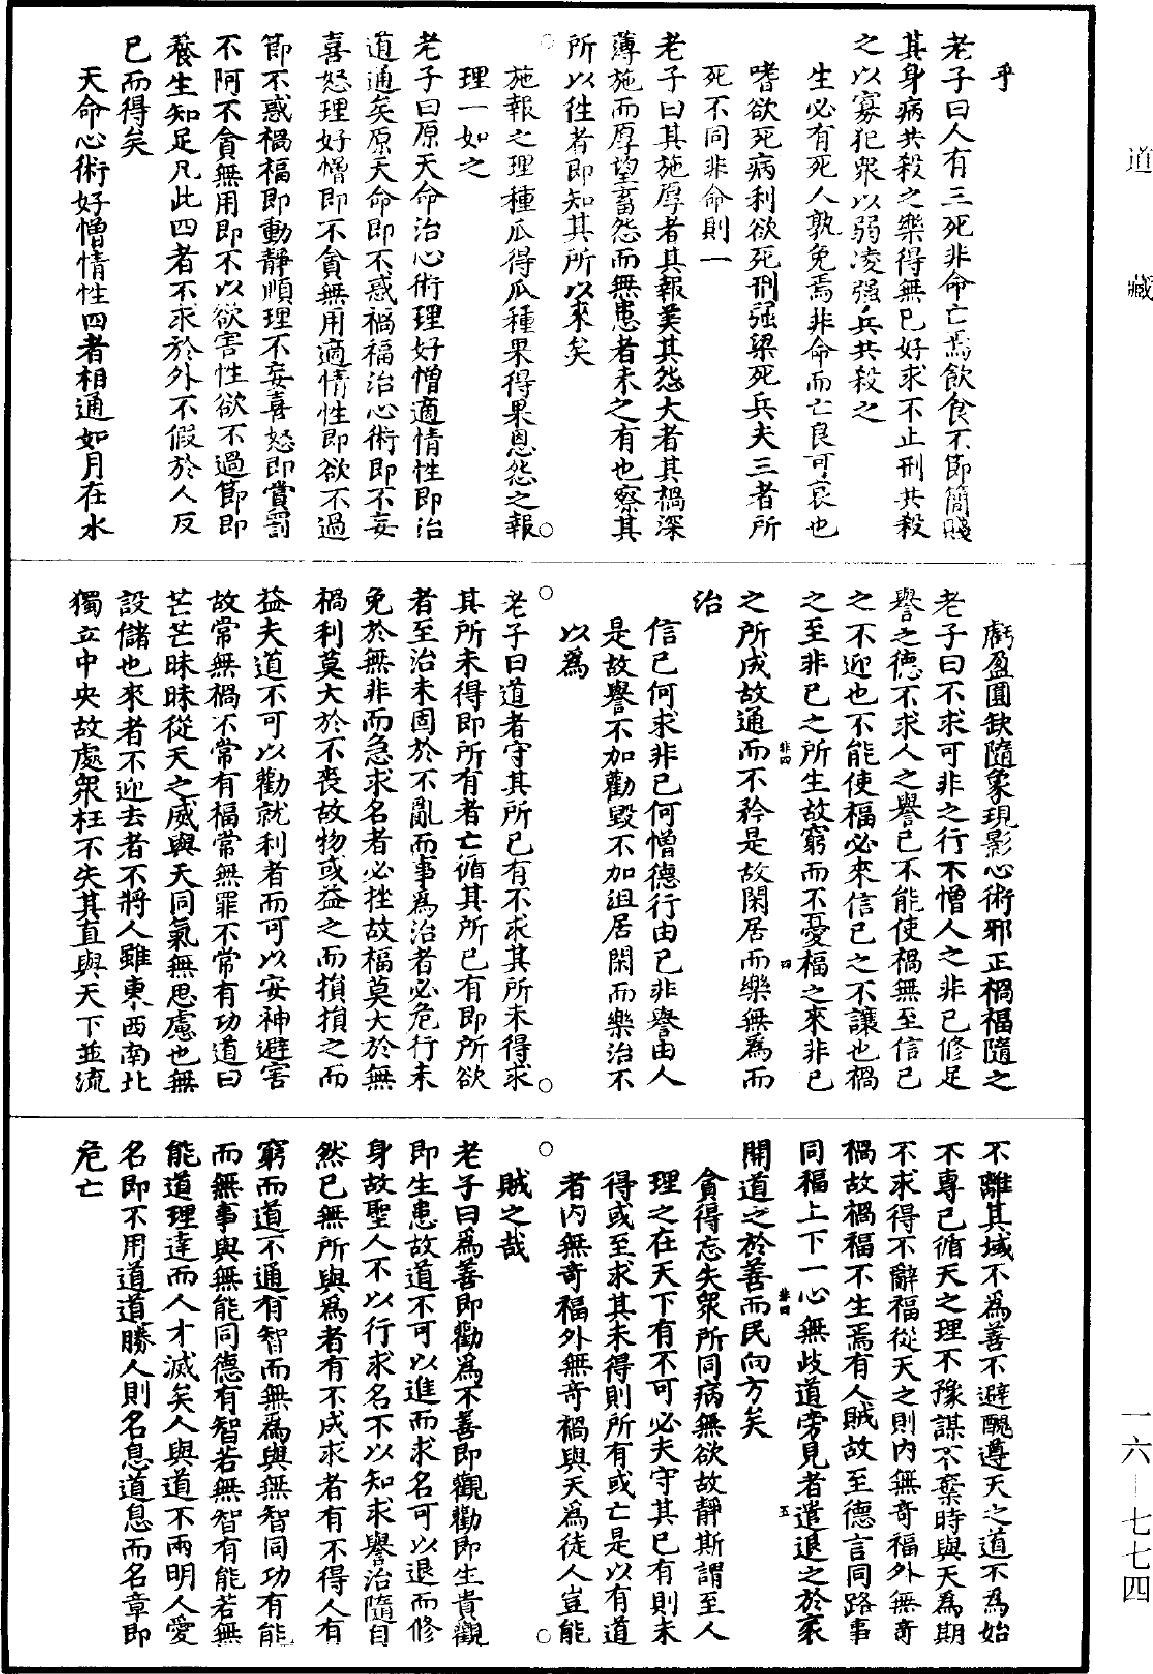 道藏
乎
老子曰人有三死非命亡焉飲食不節簡賤
其身病共殺之樂得無已好求不止刑共殺
之以寡犯衆以弱凌强兵共殺之
生必有死人孰免焉非命而亡良可哀也
嗜欲死病利欲死刑强梁死兵夫三者所
死不同非命則一
老子曰其施厚者其報美其怨大者其禍深
薄施而厚望畜怨而無患者未之有也察其
所以徃者即知其所以來矣
施報之理種瓜得瓜種果得果恩怨之報
理一如之
老子曰原天命治心術理好憎適情性即治
道通矣原天命即不惑禍福治心術即不妄
喜怒理好憎即不貪無用適情性即欲不過
節不惑禍福即動靜順理不妄喜怒即賞罰
不阿不貪無用即不以欲害性欲不過節即
養生知足凡此四者不求於外不假於人反
已而得矣
天命心術好憎情性四者相通如月在水
虧盈圓缺隨象現影心術邪正禍福隨之
老子曰不求可非之行不憎人之非已修足
譽之德不求人之譽已不能使禍無至信已
之不迎也不能使福必來信已之不讓也禍
之至非已之所生故窮而不憂福之來非已
之所成故通而不矜是故閑居而樂無爲而
治
信已何求非已何憎德行由已非譽由人
是故譽不加勸毀不加沮居閑而樂治不
以爲
老子曰道者守其所已有不求其所未得求
其所未得即所有者亡循其所已有即所欲
者至治未固於不亂而事爲治者必危行未
免於無非而急求名者必挫故福莫大於無
禍利莫大於不喪故物或益之而損損之而
益夫道不可以勸就利者而可以安神避害
故常無禍不常有福常無罪不常有功道曰
芒芒昧昧從天之威與天同氣無思慮也無
設儲也來者不迎去者不將人雖東西南北
獨立中央故處衆枉不失其直與天下並流
不離其域不爲善不避醜遵天之道不爲始
不專已循天之理不豫謀不棄時與天爲期
不求得不辭福從天之則内無奇福外無奇
禍故禍福不生焉有人賊故至德言同路事
同福上下一心無歧道旁見者遣退之於衺
開道之於善而民向方矣
貪得忘失衆所同病無欲故靜斯謂至人
理之在天下有不可必夫守其已有則未
得或至求其未得則所有或亡是以有道
者内無奇福外無奇禍與天爲徒人豈能
賊之哉
老子曰爲善即勸爲不善即觀勸即生責觀
即生患故道不可以進而求名可以退而修
身故聖人不以行求名不以知求譽治隨自
然已無所與爲者有不成求者有不得人有
窮而道不通有智而無爲與無智同功有能
而無事與無能同德有智若無智有能若無
能道理達而人才滅矣人與道不兩明人愛
名即不用道道勝人則名息道息而名章即
危亡
一六—七七四